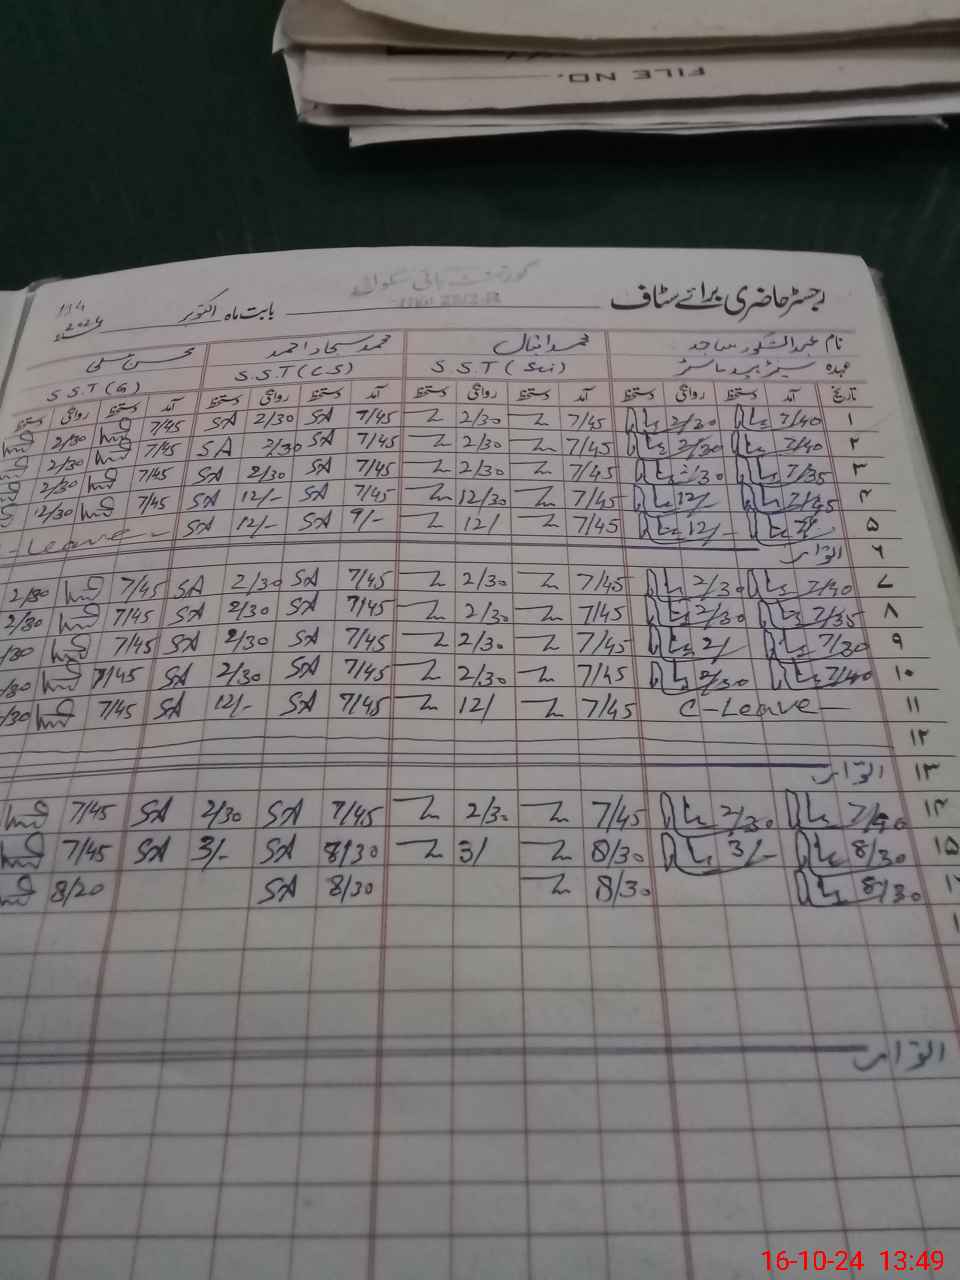 FILE NO.
گورنمنٹ ہائی سکول
رجسٹر حاضری برائے سٹاف بابت ماہ اکتوبر 2024
نام عبدالشکور ساجد محمد اقبال محمد سجاد احمد محسن علی
عہدہ سینئر ہیڈ ماسٹر S.S.T (Sci) S.S.T (CS) S.S.T (G)
تاریخ آمد دستخط روانگی دستخط آمد دستخط روانگی دستخط آمد دستخط روانگی دستخط آمد دستخط روانگی دستخط
۱ 7/40 2/30 7/45 2/30 7/45 SA 2/30 SA 7/45 2/30
۲ 7/40 2/30 7/45 2/30 7/45 SA 2/30 SA 7/45 2/30
۳ 7/35 2/30 7/45 2/30 7/45 SA 2/30 SA 7/45 2/30
۴ 7/45 12/- 7/45 12/30 7/45 SA 12/- SA 7/45 12/30
۵ 12/- 7/45 12/ 9/- SA 12/- SA C-Leave-
۶ اتوار
۷ 7/40 2/30 7/45 2/30 7/45 SA 2/30 SA 7/45 2/30
۸ 7/35 2/30 7/45 2/30 7/45 SA 2/30 SA 7/45 2/30
۹ 7/30 2/ 7/45 2/30 7/45 SA 2/30 SA 7/45 /30
۱۰ 7/40 2/30 7/45 2/30 7/45 SA 2/30 SA 7/45 /30
۱۱ C-Leave- 7/45 12/ 7/45 SA 12/- SA 7/45 /30
۱۲
۱۳ اتوار
۱۴ 7/40 2/30 7/45 2/30 7/45 SA 2/30 SA 7/45
۱۵ 8/30 3/- 8/30 3/ 8/30 SA 3/- SA 7/45
8/30 8/30 8/30 SA 8/20
اتوار
16-10-24 13:49